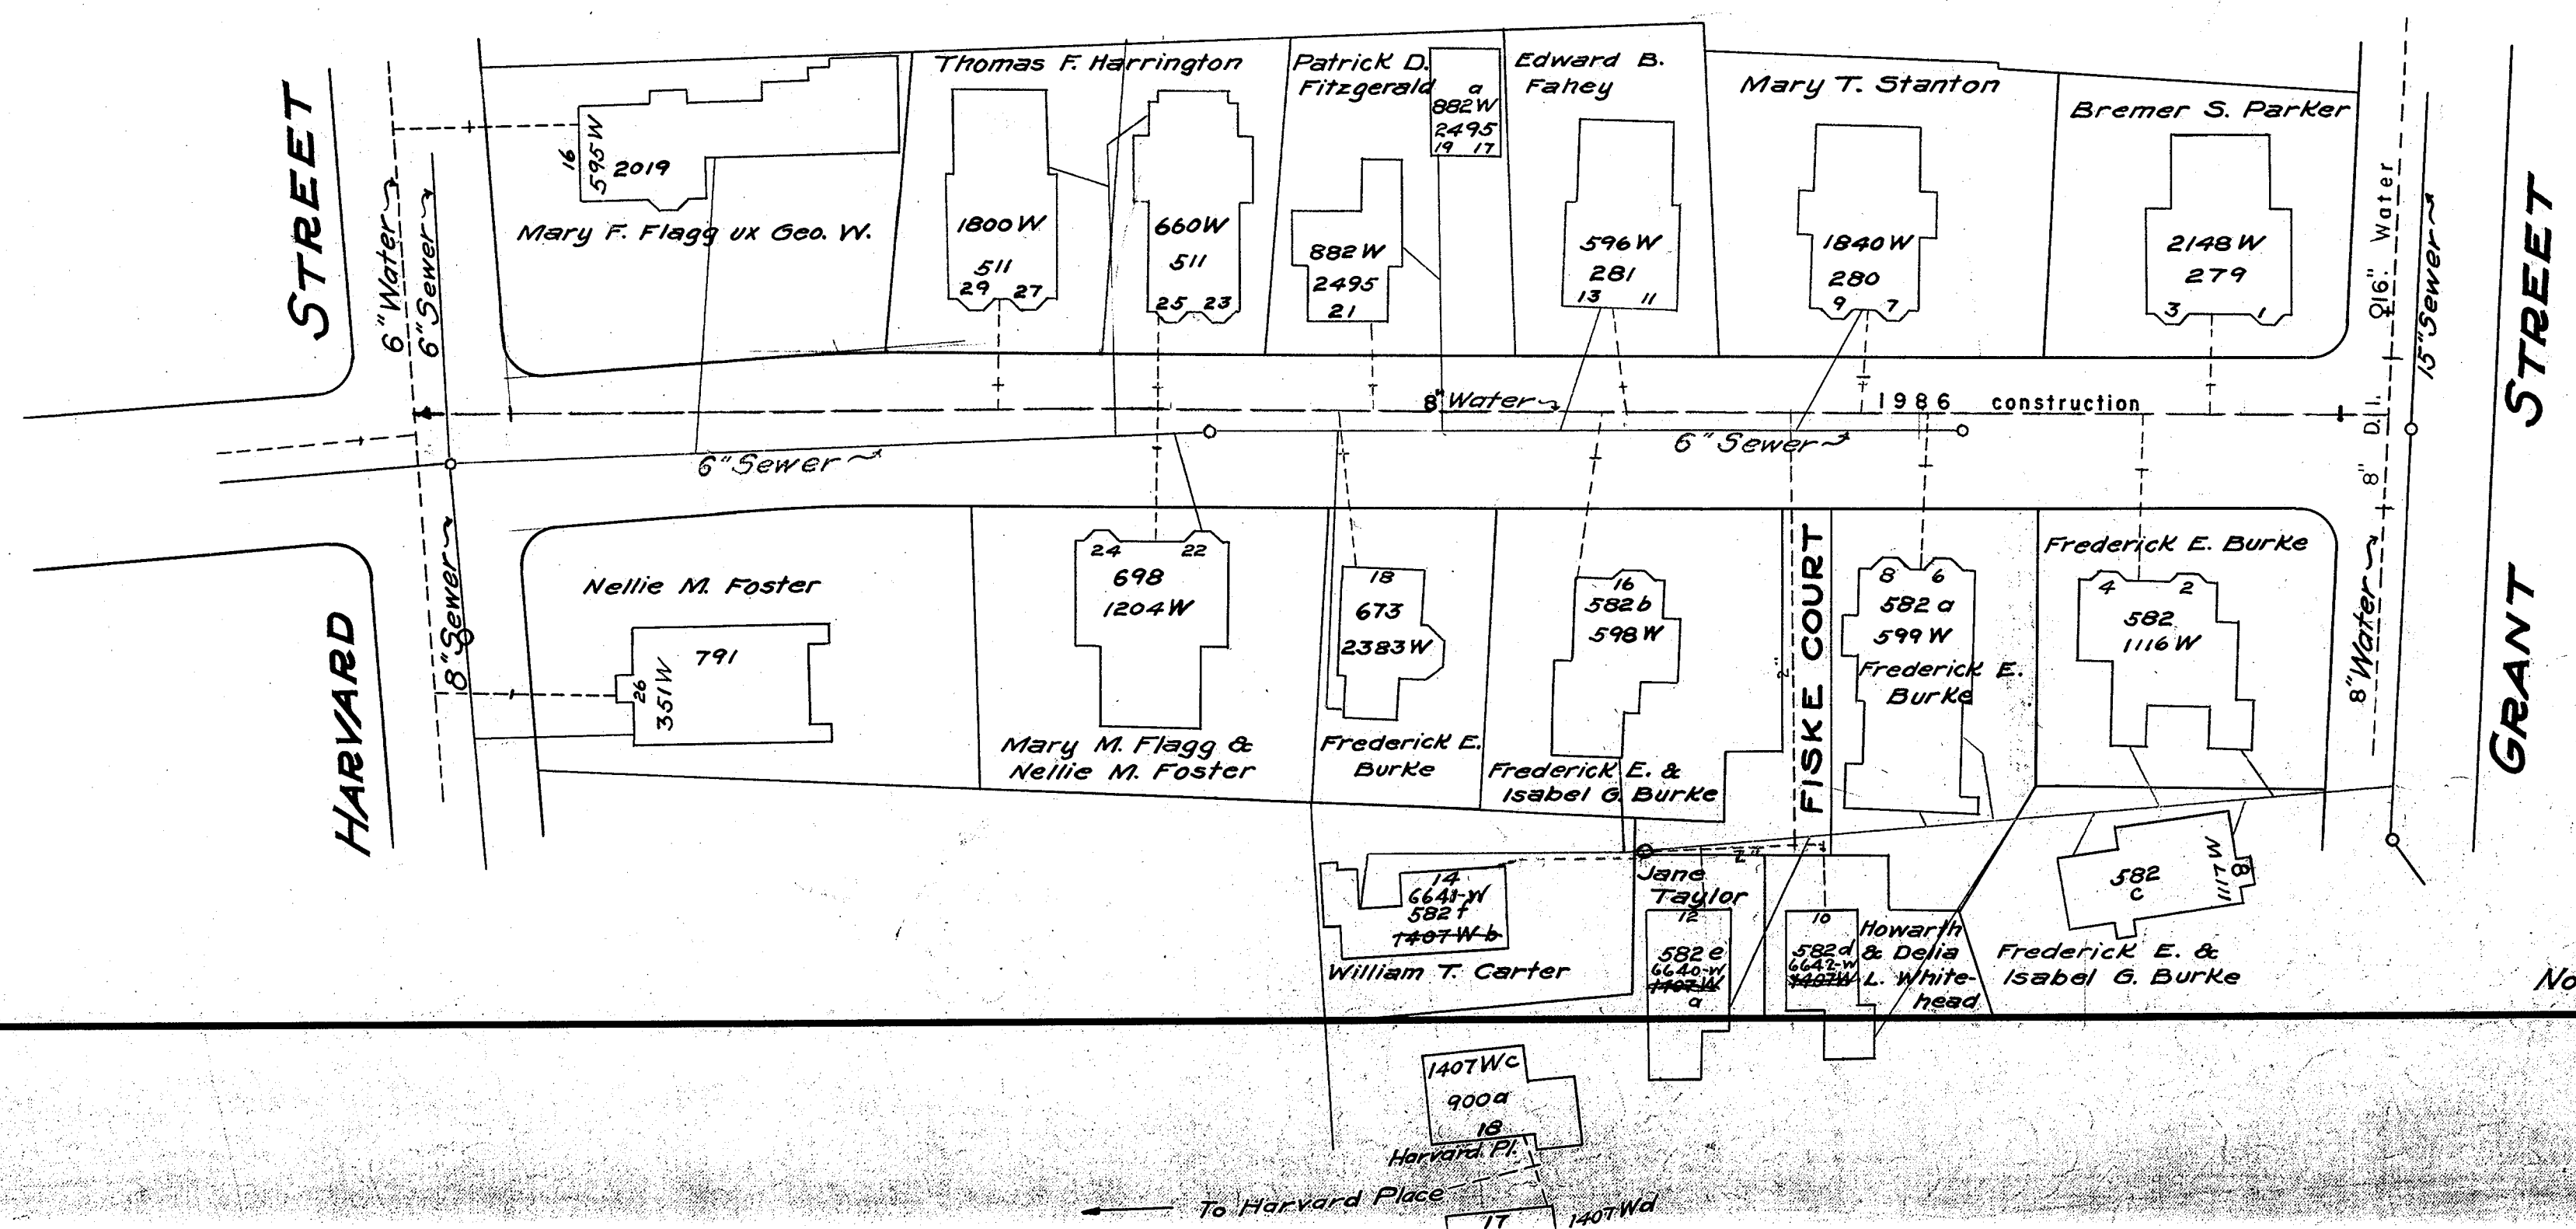 HARVARD STREET
6" Water
6" Sewer
8" Sewer
16
595W
2019
Mary F. Flagg ux Geo. W.
Thomas F. Harrington
1800W
511
29 27
660W
511
25 23
Patrick D.
Fitzgerald
882W
2495
21
a
882W
2495
19 17
Edward B.
Fahey
596W
281
13 11
Mary T. Stanton
1840W
280
9 7
Bremer S. Parker
2148W
279
3 1
8" Water
1986 construction
6" Sewer
6" Sewer
16" Water
15" Sewer
8" D.I.
8" Water
GRANT STREET
Nellie M. Foster
791
26
351W
24 22
698
1204W
Mary M. Flagg &
Nellie M. Foster
18
673
2383W
Frederick E.
Burke
16
582b
598W
Frederick E. &
Isabel G. Burke
2"
FISKE COURT
8 6
582a
599W
Frederick E.
Burke
Frederick E. Burke
4 2
582
1116W
2"
14
6641-W
582f
1407Wb
William T. Carter
Jane
Taylor
12
582e
6640-W
1407W
a
10
582d
6642-W
1407W
Howarth
& Delia
L. White-
head
582
c
1117W
8
Frederick E. &
Isabel G. Burke
No
1407Wc
900a
18
Harvard Pl.
To Harvard Place
17
1407Wd